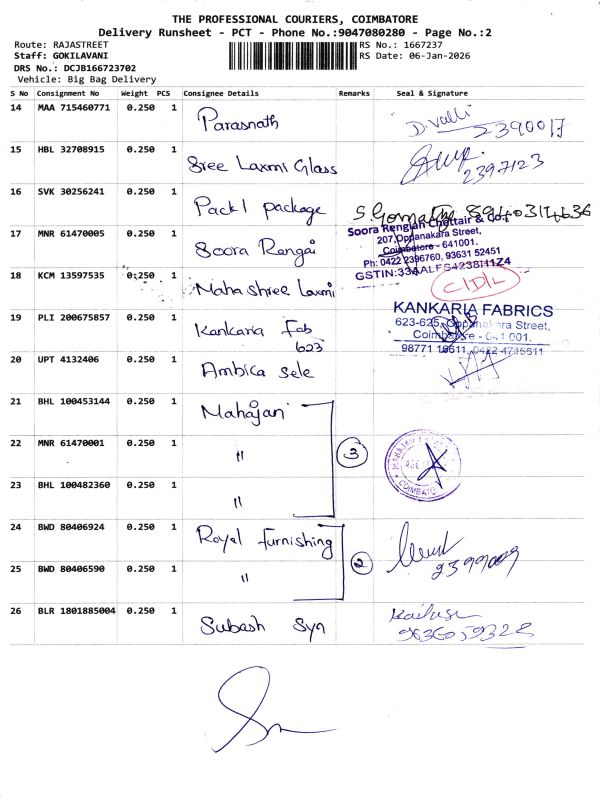 THE PROFESSIONAL COURIERS, COIMBATORE
Delivery Runsheet - PCT - Phone No.:9047080280 - Page No.:2
Route: RAJASTREET RS No.: 1667237
Staff: GOKILAVANI RS Date: 06-Jan-2026
DRS No.: DCJB166723702
Vehicle: Big Bag Delivery
S No Consignment No Weight PCS Consignee Details Remarks Seal & Signature
14 MAA 715460771 0.250 1 Parasnath D. Valli 2390017
15 HBL 32708915 0.250 1 Sree Laxmi Glass 2397123
16 SVK 30256241 0.250 1 Pack1 package S. Gomathy 8940314636
17 MNR 61470005 0.250 1 Soora Rengai
Soora Rengiah Chettair & Co.,
207, Oppanakara Street,
Coimbatore - 641001.
Ph: 0422 2396760, 93631 52451
GSTIN:33AALFS4238H1Z4
18 KCM 13597535 0.250 1 Maha shree Laxmi C/D/L
19 PLI 200675857 0.250 1 Kankaria Fab
603
KANKARIA FABRICS
623-625, Oppanakara Street,
Coimbatore - 641 001.
98771 16611, 0422 4715611
20 UPT 4132406 0.250 1 Ambica sele
21 BHL 100453144 0.250 1 Mahajan
22 MNR 61470001 0.250 1 " 3
COIMBATO
23 BHL 100482360 0.250 1 "
24 BWD 80406924 0.250 1 Royal furnishing
25 BWD 80406590 0.250 1 " 2 2399009
26 BLR 1801885004 0.250 1 Subash Syn Kailash
9636059328